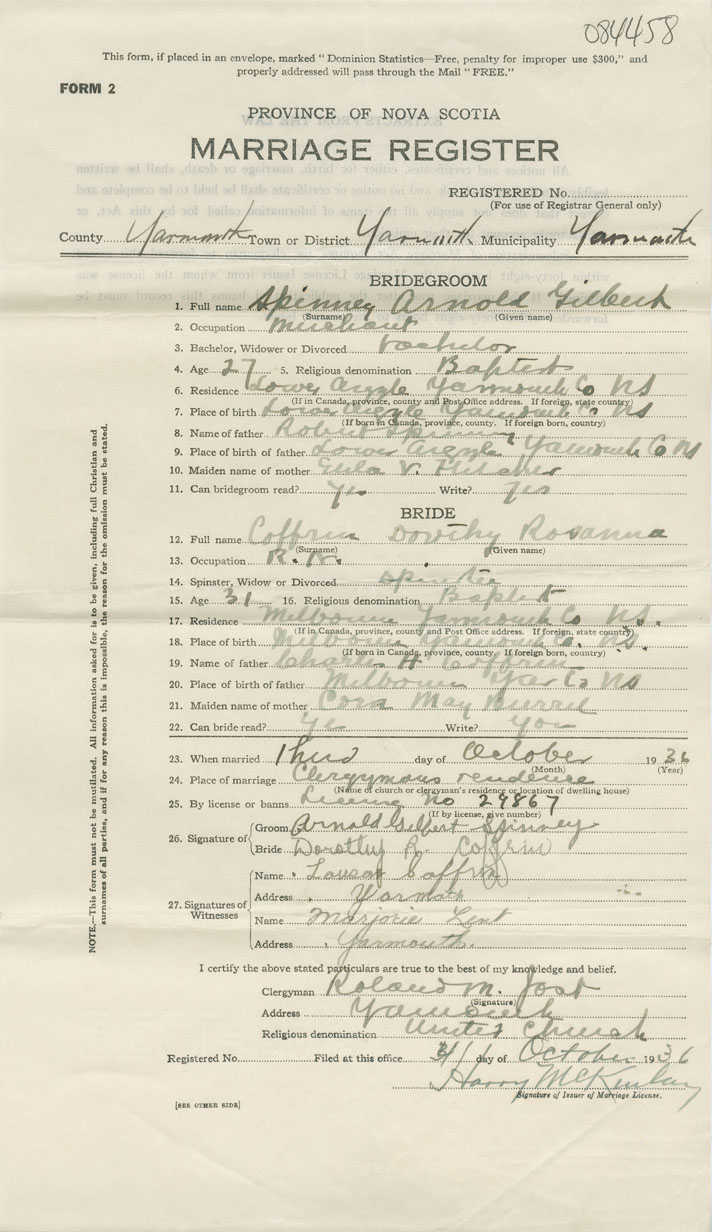 084458
This form, if placed in an envelope, marked "Dominion Statistics—Free, penalty for improper use $300," and
properly addressed will pass through the Mail "FREE."
FORM 2
PROVINCE OF NOVA SCOTIA
MARRIAGE REGISTER
REGISTERED No.
(For use of Registrar General only)
County Yarmouth Town or District Yarmouth Municipality Yarmouth
BRIDEGROOM
1. Full name Spinney Arnold Gilbert
(Surname) (Given name)
2. Occupation Merchant
3. Bachelor, Widower or Divorced bachelor
4. Age 27 5. Religious denomination Baptist
6. Residence Lower Argyle Yarmouth Co NS
(If in Canada, province, county and Post Office address. If foreign, state country)
7. Place of birth Lower Argyle Yarmouth Co NS
(If born in Canada, province, county. If foreign born, country)
8. Name of father Robert Spinney
9. Place of birth of father Lower Argyle Yarmouth Co NS
10. Maiden name of mother V.
11. Can bridegroom read? Yes Write? Yes
BRIDE
12. Full name Coffrin Dorothy Rosanna
(Surname) (Given name)
13. Occupation R. N.
14. Spinster, Widow or Divorced spinster
15. Age 31 16. Religious denomination Baptist
17. Residence Milbourne Yarmouth Co NS.
(If in Canada, province, county and Post Office address. If foreign, state country)
18. Place of birth Milbourne Yarmouth Co. NS.
(If born in Canada, province, county. If foreign born, country)
19. Name of father Charles H Coffrin
20. Place of birth of father Milbourne Yar Co NS
21. Maiden name of mother Cora May
22. Can bride read? Yes Write? Yes
23. When married Third day of October 1936
(Month) (Year)
24. Place of marriage Clergymans residence
(Name of church or clergyman's residence or location of dwelling house)
25. By license or banns License No 29867
(If by license, give number)
26. Signature of Groom Arnold Gilbert Spinney
Bride Dorothy R. Coffrin
27. Signatures of Witnesses Name Coffrin
Address Yarmouth
Name Marjorie Lent
Address Yarmouth.
I certify the above stated particulars are true to the best of my knowledge and belief.
Clergyman Roland M. Jost
(Signature)
Address Yarmouth
Religious denomination United Church
Registered No. Filed at this office day of October 1936
Harry McKinlay
Signature of Issuer of Marriage License.
[SEE OTHER SIDE]
NOTE.—This form must not be mutilated. All information asked for is to be given, including full Christian and
surnames of all parties, and if for any reason this is impossible, the reason for the omission must be stated.